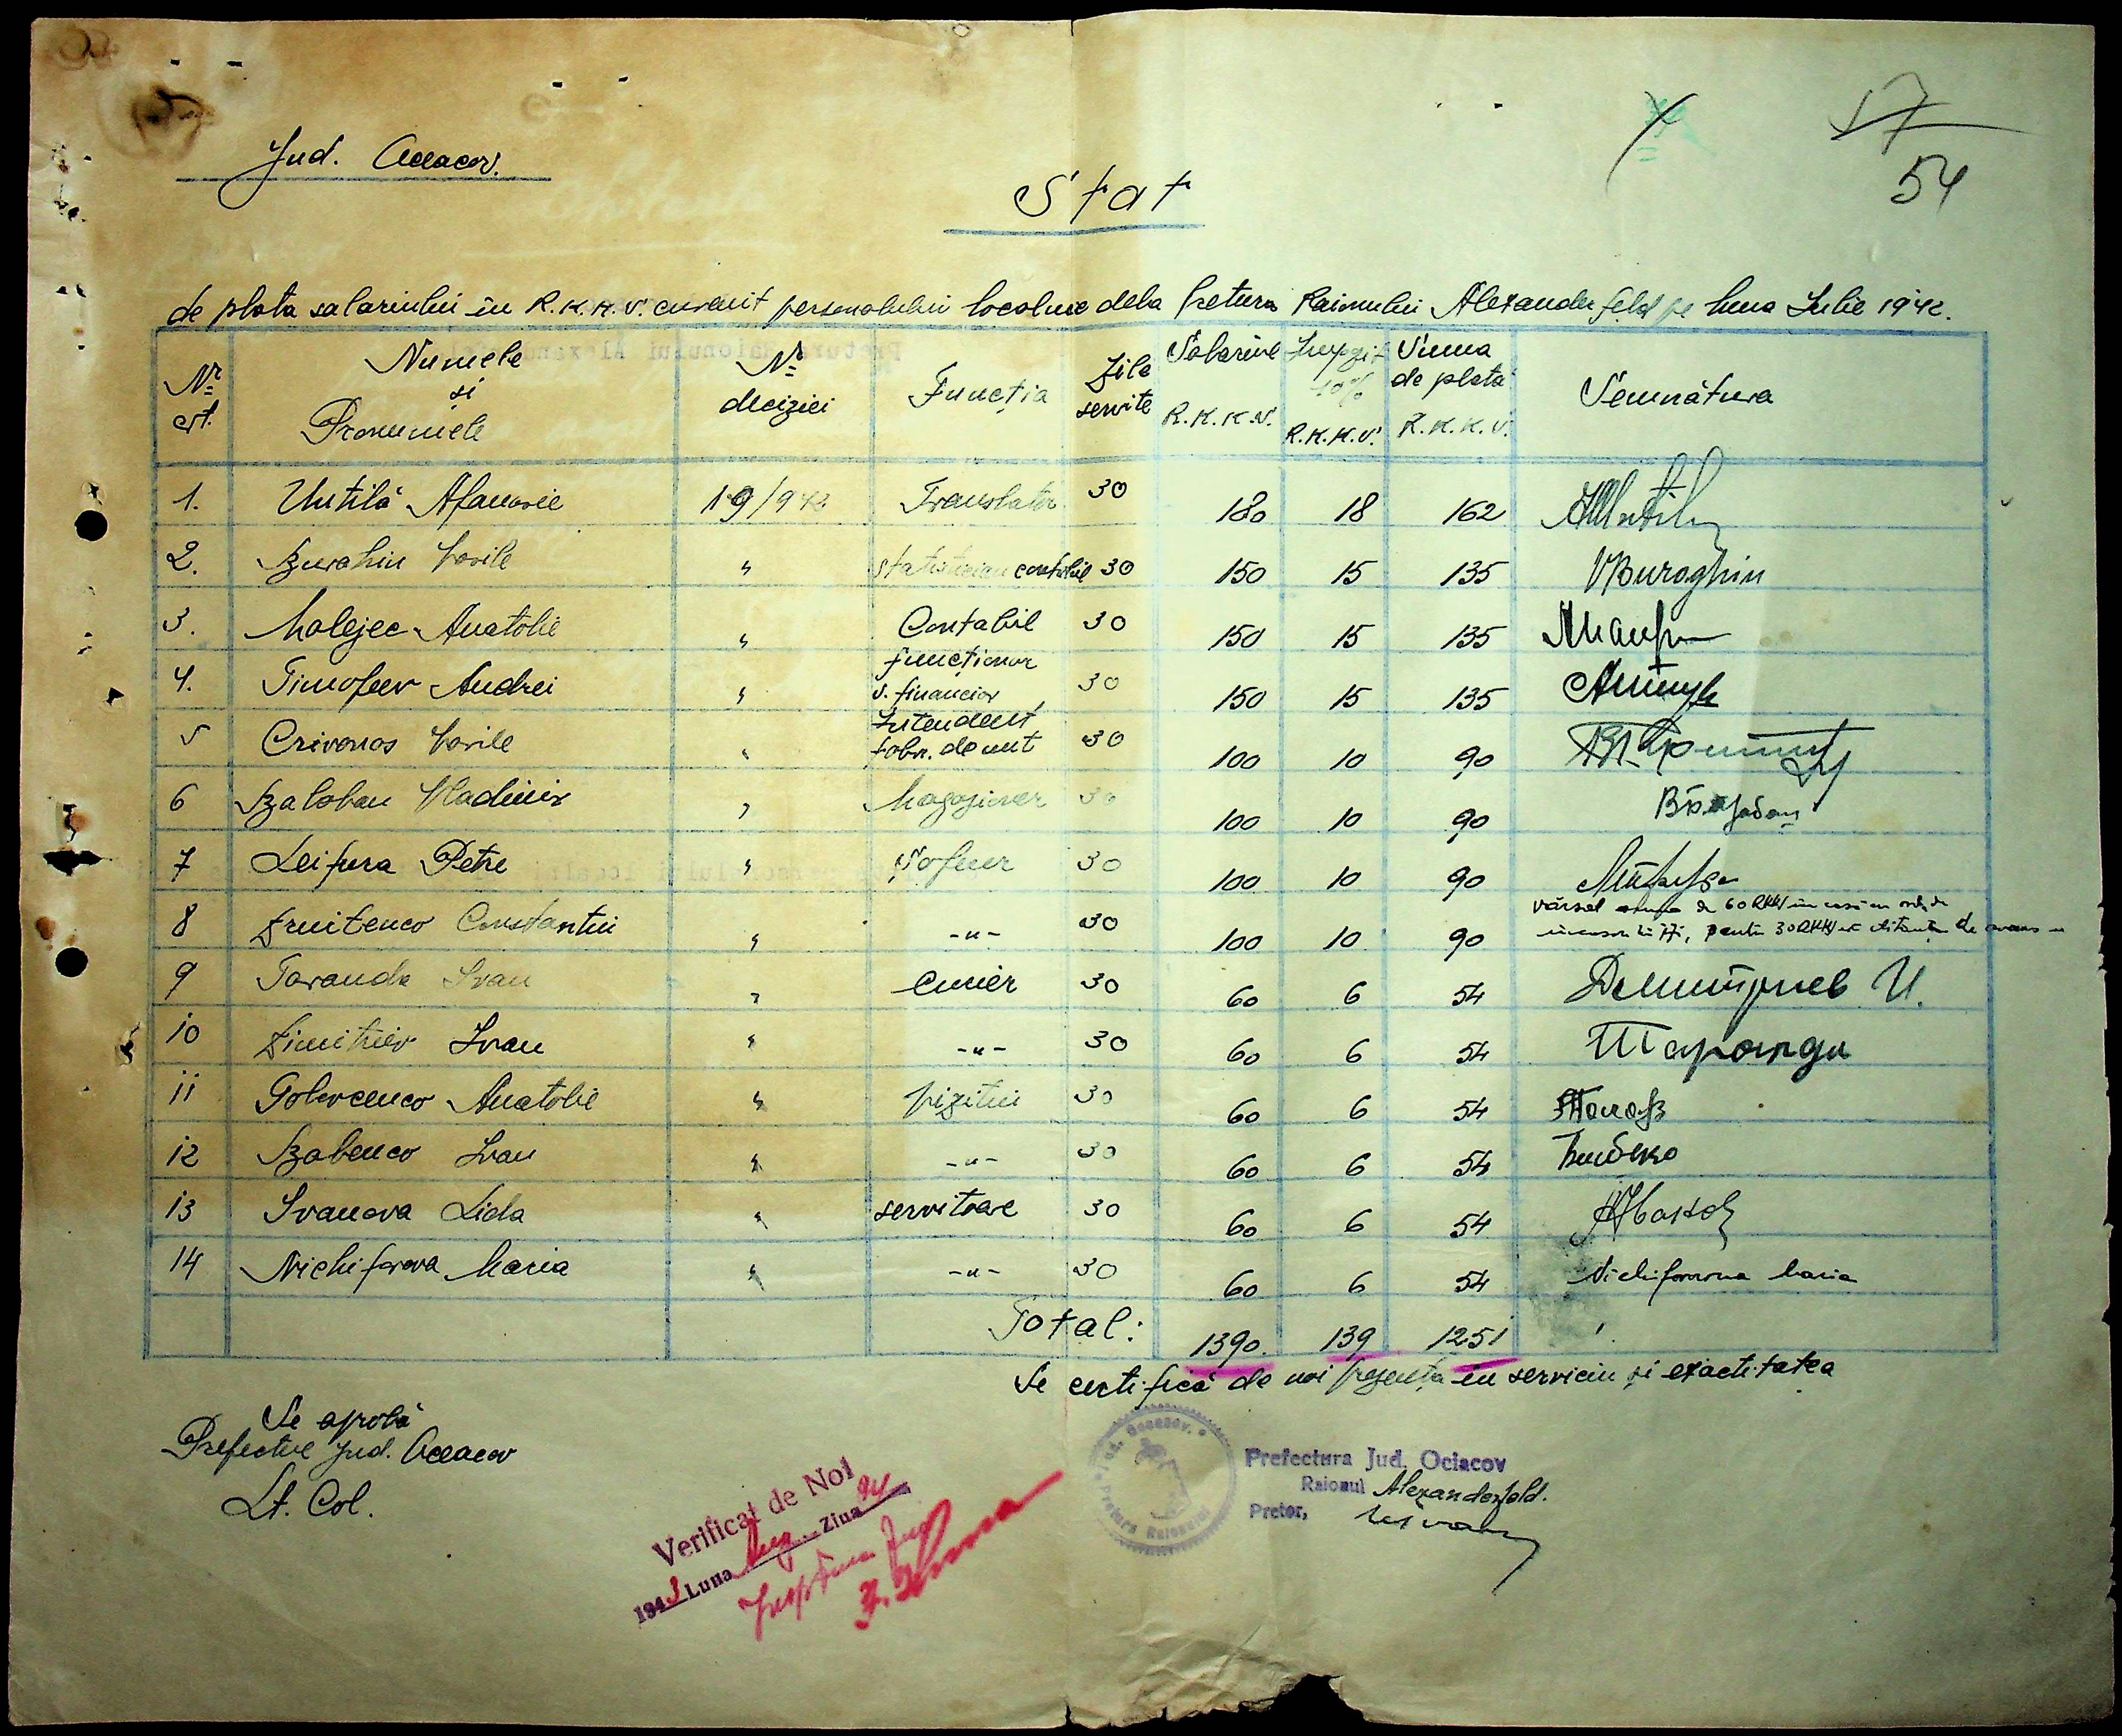 17
54
Jud. Oceacov.
Stat
de plata salariului în R.K.K.S. cuvenit personalului localnic dela Pretura Raionului Alexanderfeld pe luna Iulie 1942.
Nr. crt. Numele și Pronumele Nr. deciziei Funcția Zile servite Salariul R.K.K.S. Impozit 10% R.K.K.S. Suma de plată R.K.K.S. Semnătura
1. Untilă Afanasie 19/942 Translator 30 180 18 162
2. Burahin Vasile " Statistician contabil 30 150 15 135 VBuraghin
3. Malejec Anatolie " Contabil 30 150 15 135
4. Timofeev Andrei " funcționar s. financiar 30 150 15 135
5 Crivonos Vasile " Intendent 30 100 10 90
6 Balaban Vladimir " Magaziner 30 100 10 90
7 Leifura Petre " Șofeur 30 100 10 90
8 Dmitenco Constantin " -"- 30 100 10 90
9 Taranda Ivan " curier 30 60 6 54 Демитриев И.
10 Dimitriev Ivan " -"- 30 60 6 54 Таранда
11 Golovcenco Anatolie " vizitiu 30 60 6 54
12 Babenco Ivan " -"- 30 60 6 54
13 Ivanova Lida " servitoare 30 60 6 54
14 Nichiforova Maria " -"- 30 60 6 54 Nichiforovna Maria
Total: 1390. 139 1251
Se certifică de noi prezența în serviciu și exactitatea
Se aprobă
Prefectul Jud. Oceacov
Lt. Col.
Verificat de Noi
1943 Luna Aug Ziua 24
Jud. Oceacov.
Pretura Raionului
Prefectura Jud. Ociacov
Raionul Alexanderfeld.
Pretor,